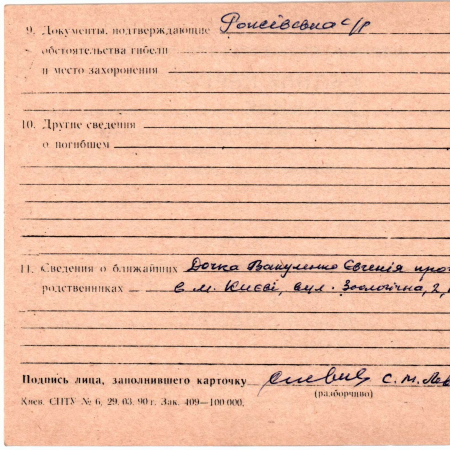 9. Документы, подтверждающие
обстоятельства гибели
и место захоронения
10. Другие сведения
о погибшем
11. Сведения о ближайших Дочка Вакуленко Євгенія
родственниках в м. Києві, вул. Зоологічна, 2,
Подпись лица, заполнившего карточку С. М.
(разборчиво)
Киев. СПТУ № 6. 29. 03. 90 г. Зак. 409—100 000.